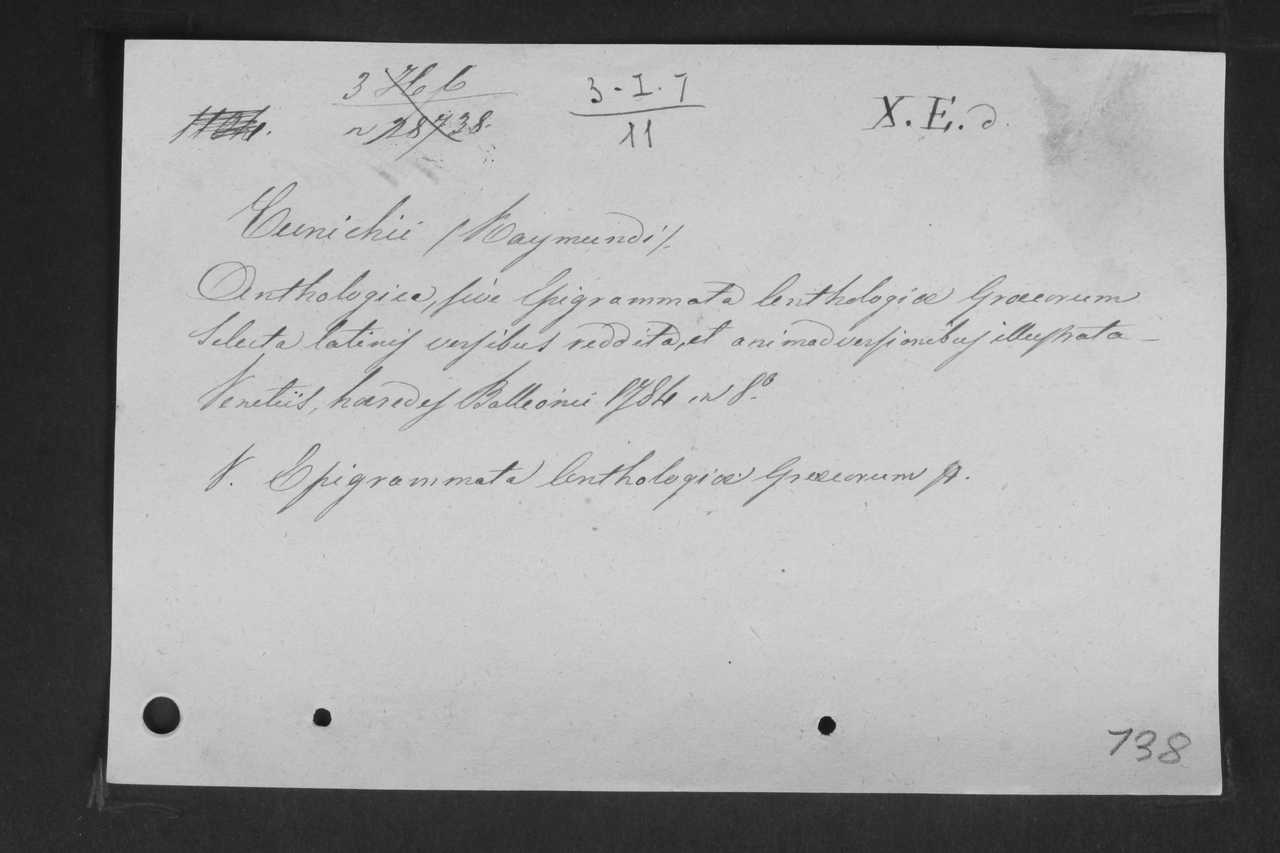 3 H b 3-I.7 X.E.d
n 28738. 11
Cunichii (Raymundi).
Anthologica, sive Epigrammata Anthologiæ Græcorum
Selecta latinis versibus reddita, et animadversionibus illustrata —
Venetiis, hæredes Balleonii 1784 in 8º.
V. Epigrammata Anthologiæ Græcorum
738